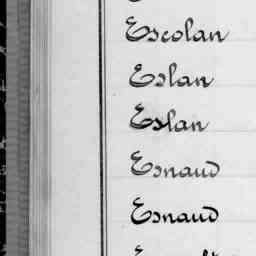 Escolan
Eslan
Eslan
Esnaud
Esnaud